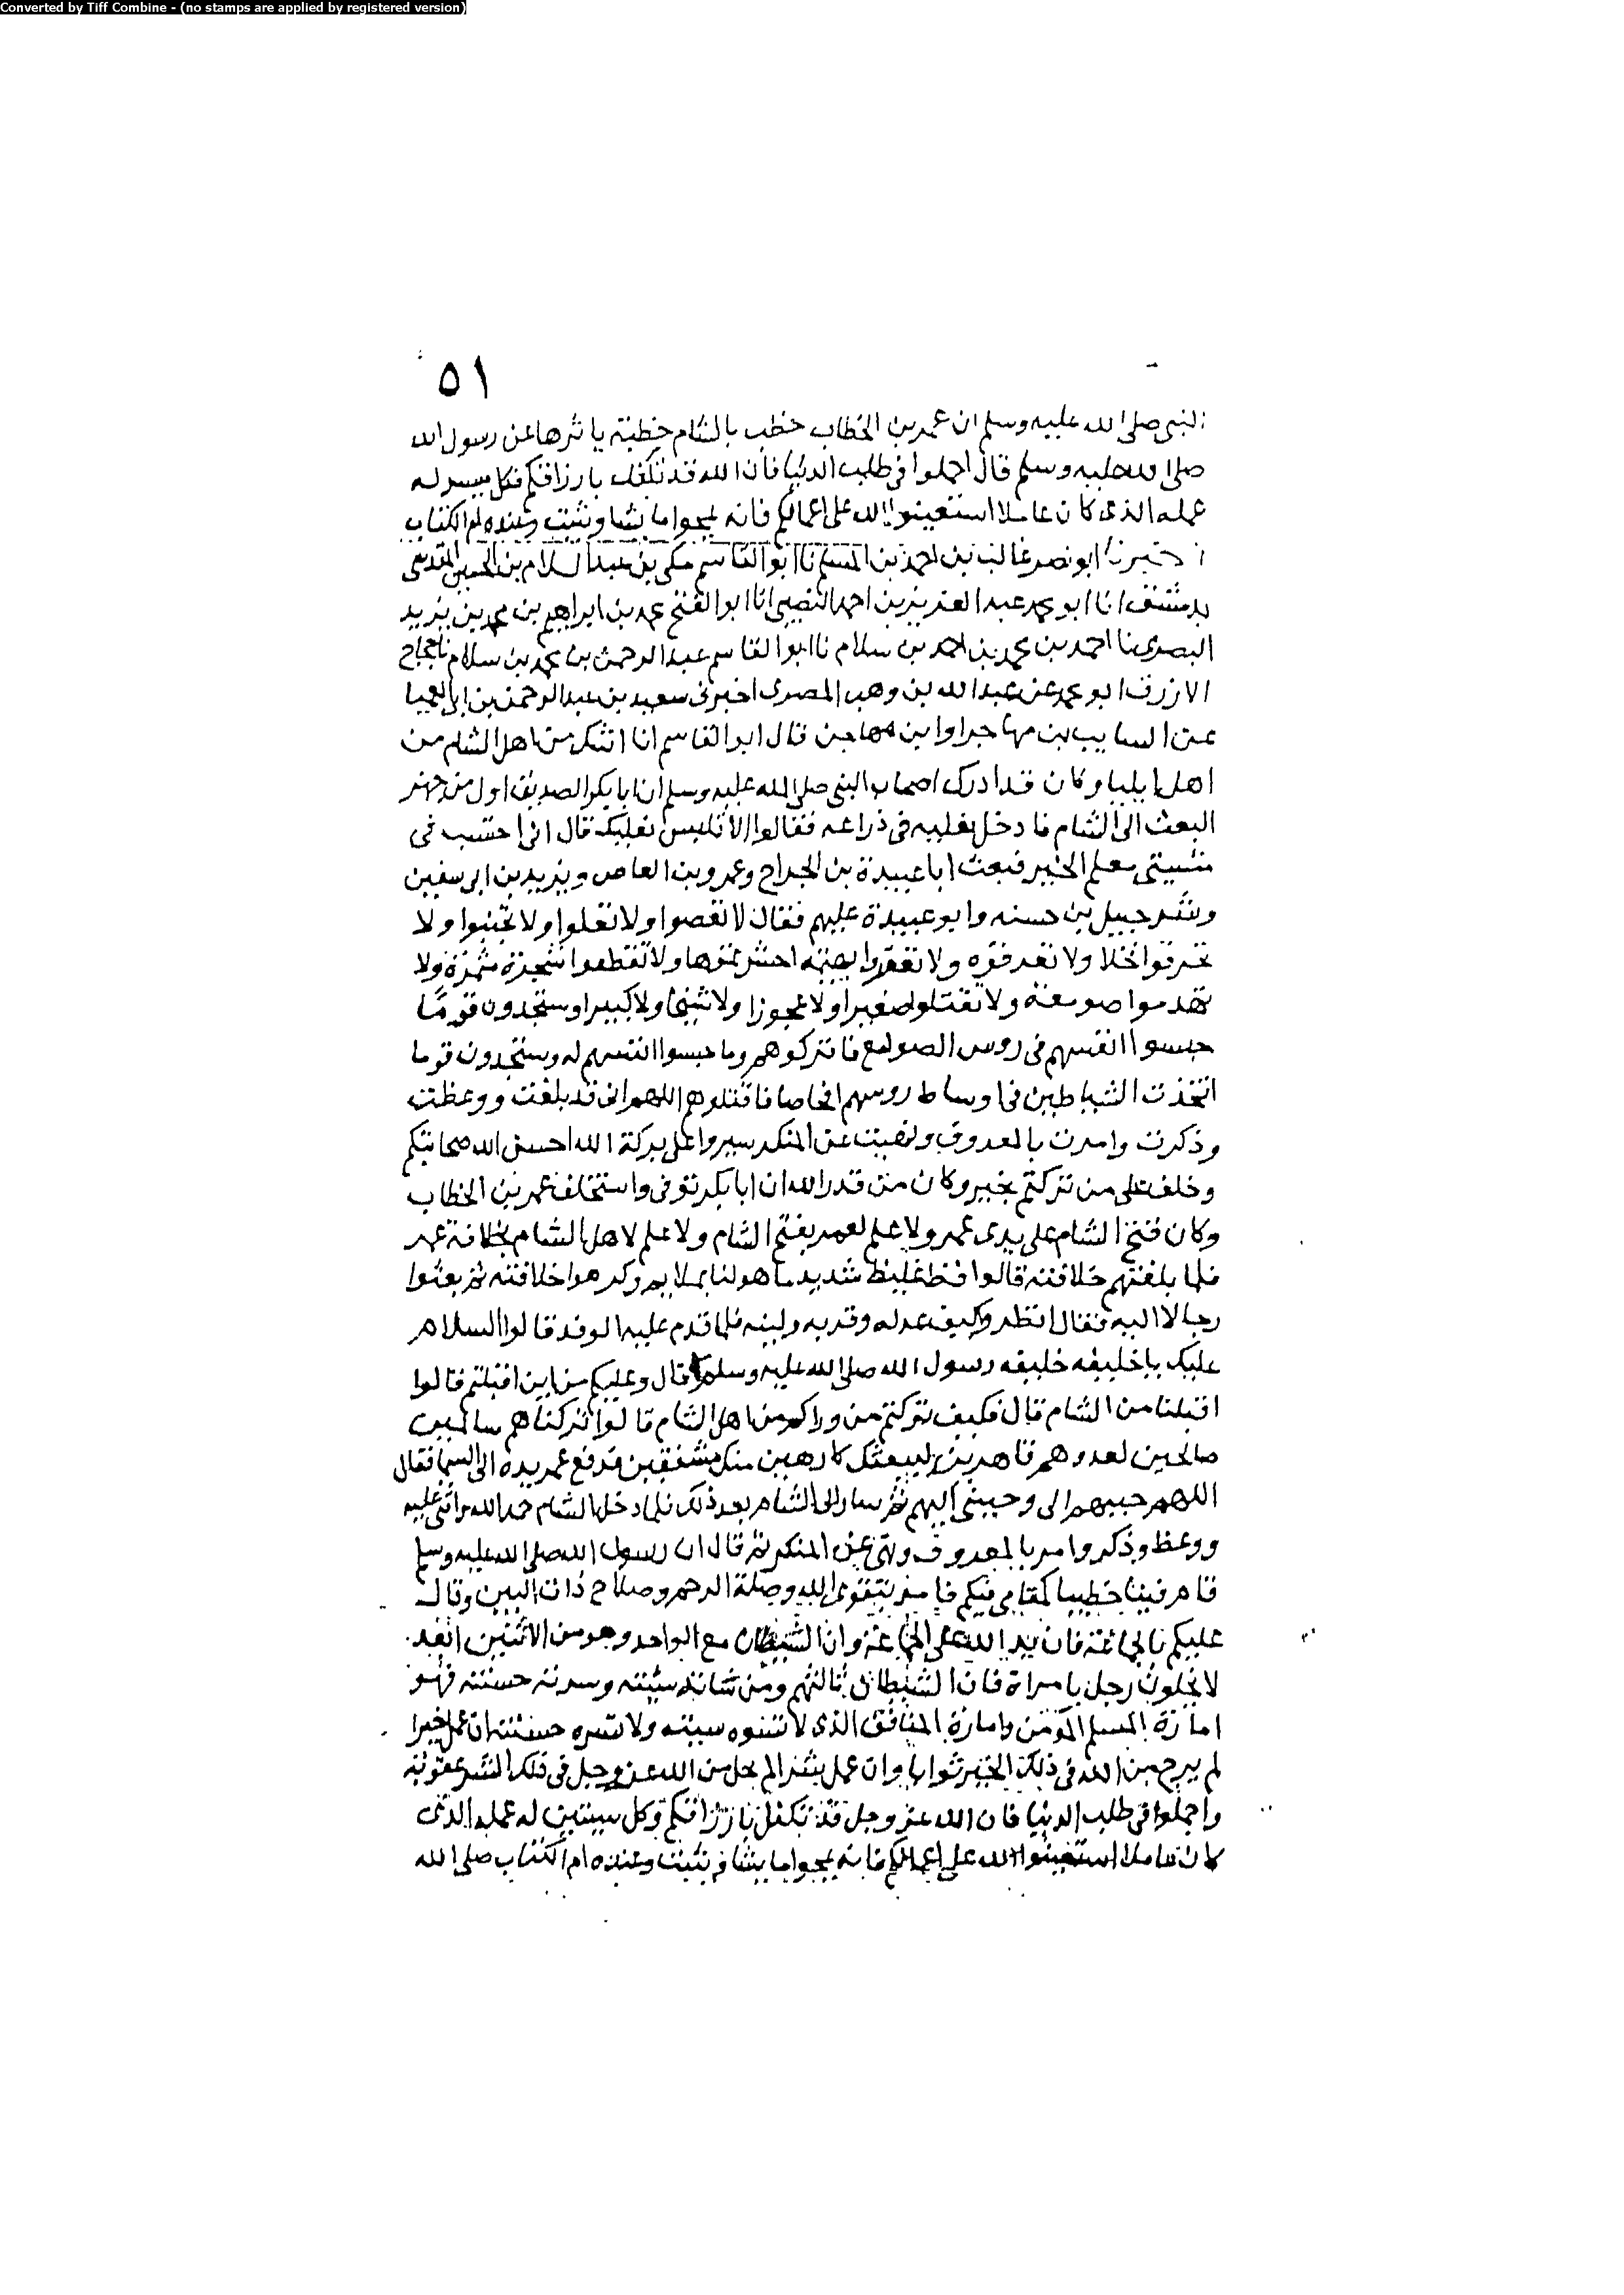 Converted by Tiff Combine - (no stamps are applied by registered version)
٥١
النبى صلى الله عليه وسلم ان عمر بن الخطاب خطب بالشام خطبة ياثرها عن رسول الله
صلى الله عليه وسلم قال اجملوا فى طلب الدنيا فان الله قد تكفل بارزاقكم فكل ميسر له
عمله الذى كان عاملا استعينوا الله على اعمالكم فانه يمحوا ما يشا ويثبت وعنده ام الكتاب
اخبرنا ابو نصر غالب بن احمد بن المسلم نا ابو القاسم مكى بن عبد السلام بن الحسين المقدسى
بدمشق انا ابو محمد عبد العزيز بن احمد النصيبى انا ابو الفتح محمد بن ابراهيم بن محمد بن يزيد
البصرى نا احمد بن محمد بن احمد بن سلام نا ابو القاسم عبد الرحمن بن محمد بن سلام نا حجاج
الازرق ابو محمد عن عبد الله بن وهب المصرى اخبرنى سعيد بن عبد الرحمن بن ابى العميا
عن السايب بن مهاجر او ابن مهاجن قال ابو القاسم انا اشك من اهل الشام من
اهل ايليا وكان قد ادرك اصحاب النبى صلى الله عليه وسلم ان ابا بكر الصديق اول من جهز
البعث الى الشام فادخل نعليه فى ذراعه فقالوا الا تلبس نعليك قال انى احتسب فى
مشيتى معلم الخير فبعث ابا عبيدة بن الجراح وعمرو بن العاص ويزيد بن ابى سفين
وشرحبيل بن حسنه وابو عبيدة عليهم فقال لا تعصوا ولا تغلوا ولا تجبنوا ولا
تحرقوا نخلا ولا تعرقوه ولا تعقروا بهيمه ولا تقطعوا شجرة مثمرة ولا
تهدموا صومعة ولا تقتلوا صغيرا ولا عجوزا ولا شيخا ولا كبيرا وستجدون قوما
حبسوا انفسهم فى روس الصوامع فاتركوهم وما حبسوا انفسهم له وستجدون قوما
اتخذت الشياطين فى اوساط روسهم افحاصا فاقتلوهم اللهم انى قد بلغت ووعظت
وذكرت وامرت بالمعروف ونهيت عن المنكر سيروا على بركة الله احسن الله صحابتكم
وخلف على من تركتم بخير وكان من قدر الله ان ابا بكر توفى واستخلف عمر بن الخطاب
وكان فتح الشام على يدى عمر ولا علم لعمر بفتح الشام ولا علم لاهل الشام بخلافة عمر
فلما بلغتهم خلافته قالوا فظ غليظ شديد ما هو لنا بملايم وكرهوا خلافته ثم بعثوا
رجالا اليه فقال انظروا كيف عدله وقربه ولينه فلما قدم عليه الوفد قالوا السلام
عليك يا خليفه خليفه رسول الله صلى الله عليه وسلم قال وعليكم من اين اقبلتم قالوا
اقبلنا من الشام قال فكيف تركتم من وراكم من اهل الشام قالوا تركناهم سالمين
صالحين لعدوهم قاهرين لبيعتك كارهين منك مشفقين فرفع عمر يده الى السما فقال
اللهم حببهم الى وحببنى اليهم ثم سار الى الشام بعد ذلك فلما دخل الشام حمد الله واثنى عليه
ووعظ وذكر وامر بالمعروف ونهى عن المنكر ثم قال ان رسول الله صلى الله عليه وسلم
قام فينا خطيبا كمقامى فيكم فامر بتقوى الله وصلة الرحم وصلاح ذات البين وقال
عليكم بالجماعة فان يد الله على الجماعة وان الشيطان مع الواحد وهو من الاثنين ابعد
لا يخلون رجل بامراة فان الشيطان ثالثهم ومن ساته سيئته وسرته حسنته فهو
امارة المسلم المؤمن وامارة المنافق الذى لا تسوه سيئته ولا تسره حسنته ان عمل خيرا
لم يرج من الله فى ذلك الخير ثوابا وان عمل شرا لم يخل من الله عز وجل فى ذلك الشر عقوبة
واجملوا فى طلب الدنيا فان الله عز وجل قد تكفل بارزاقكم وكل سيتبين له عمله الذى
كان عاملا استعينوا الله على اعمالكم فانه يمحوا ما يشا ويثبت وعنده ام الكتاب صلى الله